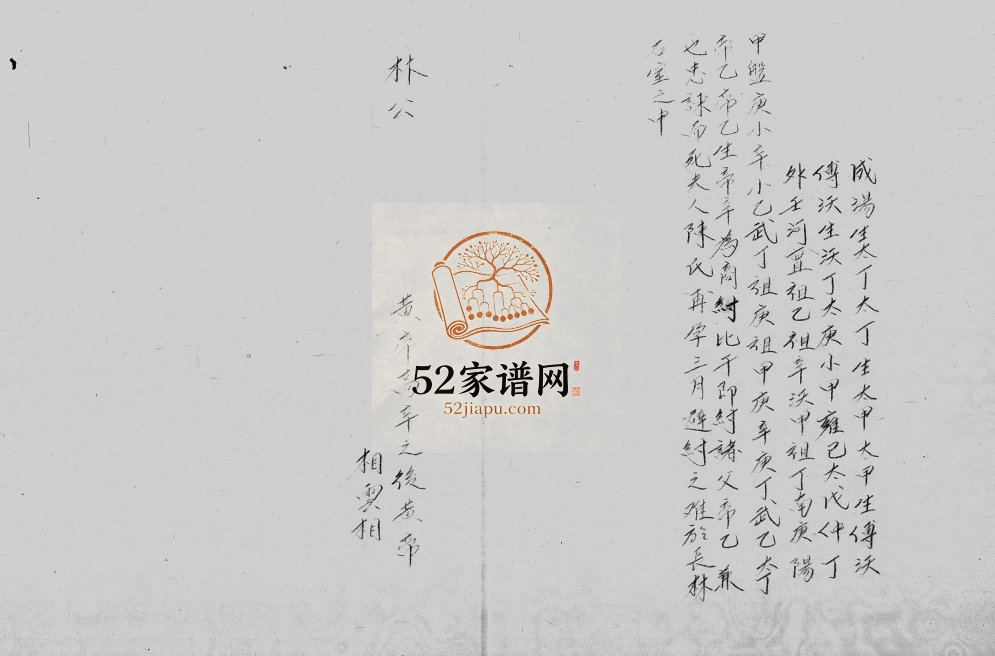 成湯生太丁太丁生太甲太甲生傅沃
傅沃生沃丁太庚小甲雍己太戊仲丁
外壬河亶祖乙祖辛沃甲祖丁南庚陽
甲盤庚小辛小乙武丁祖庚祖甲庚辛庚丁武乙太丁
帝乙帝乙生帝辛為商紂比干即紂諸父帝乙
也忠諫而死夫人陳氏 孕三月避紂之难於長林
石室之中
林公
黄 辛之後黄帝
相 相
52家谱网
52jiapu.com